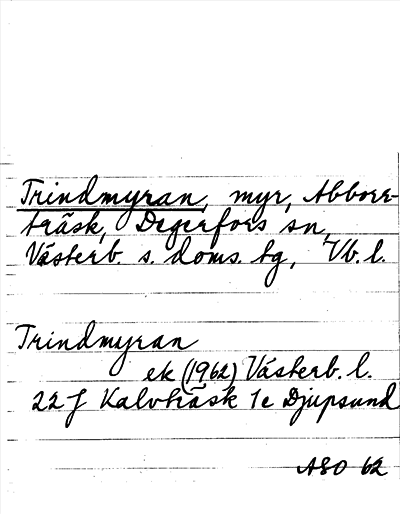 Trindmyran, myr, Abborr-
träsk, Degerfors sn,
Västerb. s. doms. tg, Vb. l.
Trindmyran
ek (1962) Västerb. l.
22 J Kalvträsk 1e Djupsund
ASO 62